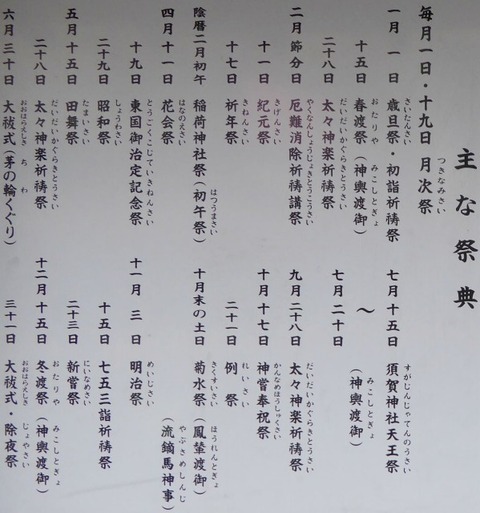 主な祭典
毎月一日・十九日 月次祭 つきなみさい
一月 一日 歳旦祭・初詣祈祷祭 さいたんさい
十五日 春渡祭(神輿渡御) おたりや みこしとぎょ
二十八日 太々神楽祈祷祭 だいだいかぐらきとうさい
二月 節分日 厄難消除祈祷講祭 やくなんしょうじょきとうこうさい
十一日 紀元祭 きげんさい
十七日 祈年祭 きねんさい
陰暦二月初午 稲荷神社祭(初午祭) はつうまさい
四月 十一日 花会祭 はなのえさい
十九日 東国御治定記念祭 とうごくごじていきねんさい
二十九日 昭和祭 しょうわさい
五月 十五日 田舞祭 たまいさい
二十八日 太々神楽祈祷祭 だいだいかぐらきとうさい
六月 三十日 大祓式(茅の輪くぐり) おおはらえしき ち わ
七月 十五日 須賀神社天王祭 すがじんじゃてんのうさい
〜 (神輿渡御) みこしとぎょ
七月 二十日
九月 二十八日 太々神楽祈祷祭 だいだいかぐらきとうさい
十月 十七日 神嘗奉祝祭 かんなめほうしゅくさい
二十一日 例祭 れいさい
十月末の土日 菊水祭(鳳輦渡御) きくすいさい ほうれんとぎょ
(流鏑馬神事) やぶさめしんじ
十一月 三日 明治祭 めいじさい
十五日 七五三詣祈祷祭
二十三日 新嘗祭 にいなめさい
十二月 十五日 冬渡祭(神輿渡御) おたりや みこしとぎょ
三十一日 大祓式・除夜祭 おおはらえしき じょやさい